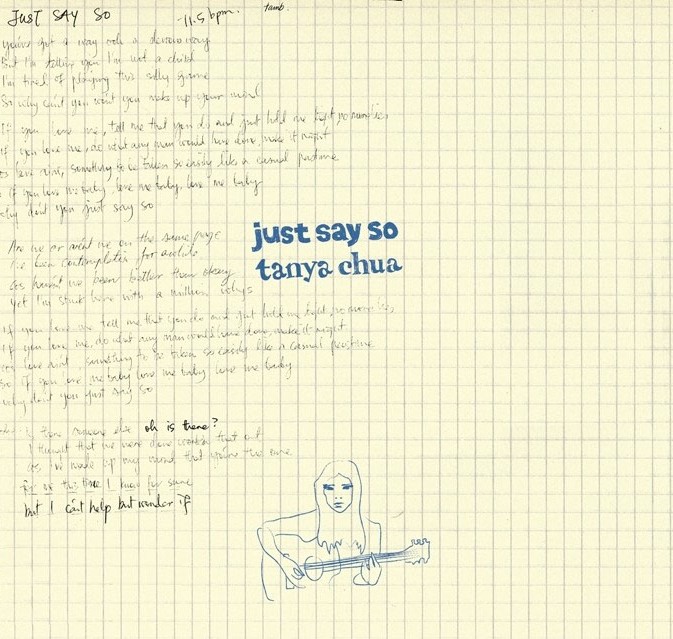 JUST SAY SO
-11.5 bpm.
tamb.
you've got a way ooh a
But I'm telling you I'm not a child
I'm tired of playing this silly game
So why can't you won't you make up your mind
If you love me, tell me that you do and just hold me tight, no more lies
If you love me, do what any man would have done, make it right
love ain't something to be taken so easily like a casual pastime
If you love me baby, love me baby, love me baby
why don't you just say so
just say so
tanya chua
Are we or aren't we on the same page
I've been contemplating for awhile
cos haven't we been better than okay
Yet I'm stuck here with a million whys
If you love me tell me that you do and just hold me tight, no more lies
If you love me, do what any man would have done, make it right
cos love ain't something to be taken so easily like a casual pastime
so if you love me baby love me baby love me baby
why don't you just say so
someone else oh is there?
I thought that we were done that out
cos I've made up my mind that you're the one
for me this time I know for sure
but I can't help but wonder if